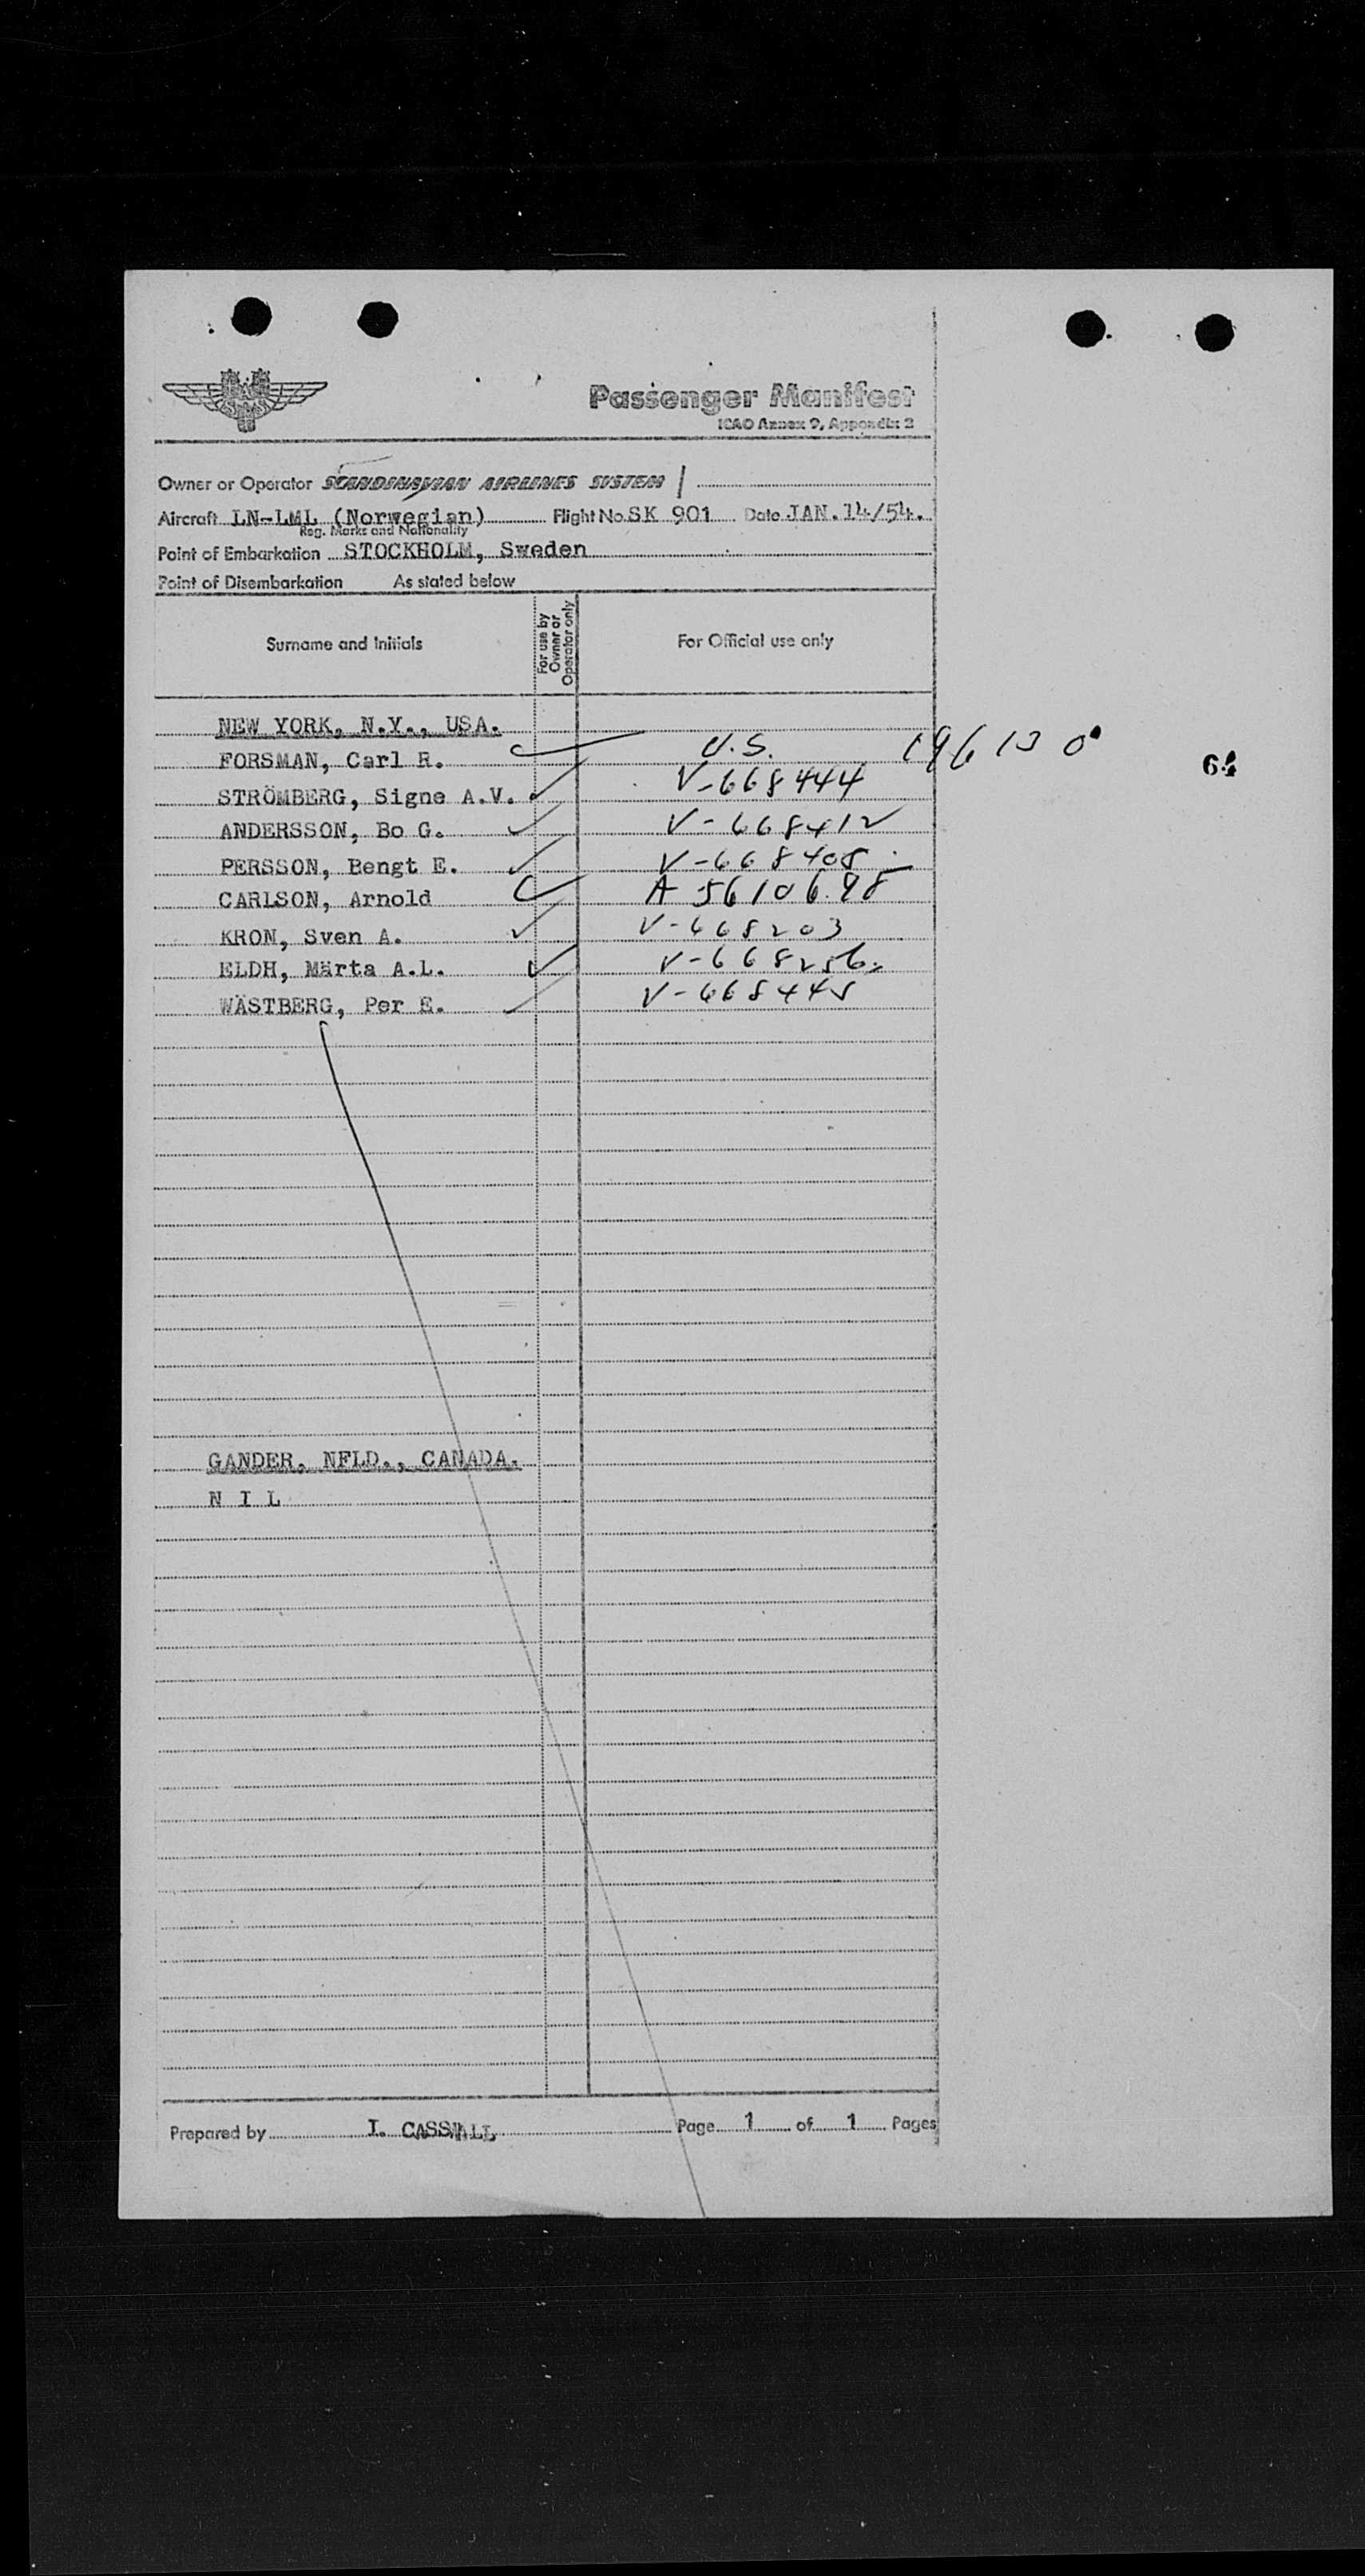 Passenger Manifest
ICAO Annex 9, Appendix 2
Owner or Operator SCANDINAVIAN AIRLINES SYSTEM
Aircraft LN-LML (Norwegian) Flight No. SK 901 Date JAN. 14/54.
Reg. Marks and Nationality
Point of Embarkation STOCKHOLM, Sweden
Point of Disembarkation As stated below
Surname and Initials For use by Owner or Operator only For Official use only
NEW YORK, N.Y., USA.
FORSMAN, Carl R. U.S.
64
STRÖMBERG, Signe A.V. V-668444
ANDERSSON, Bo G. V-668412
PERSSON, Bengt E. V-668408
CARLSON, Arnold A 5610698
KRON, Sven A. V-668203
ELDH, Märta A.L. V-668256
WÄSTBERG, Per E. V-668445
GANDER, NFLD., CANADA.
N I L
Prepared by I. Page 1 of 1 Pages